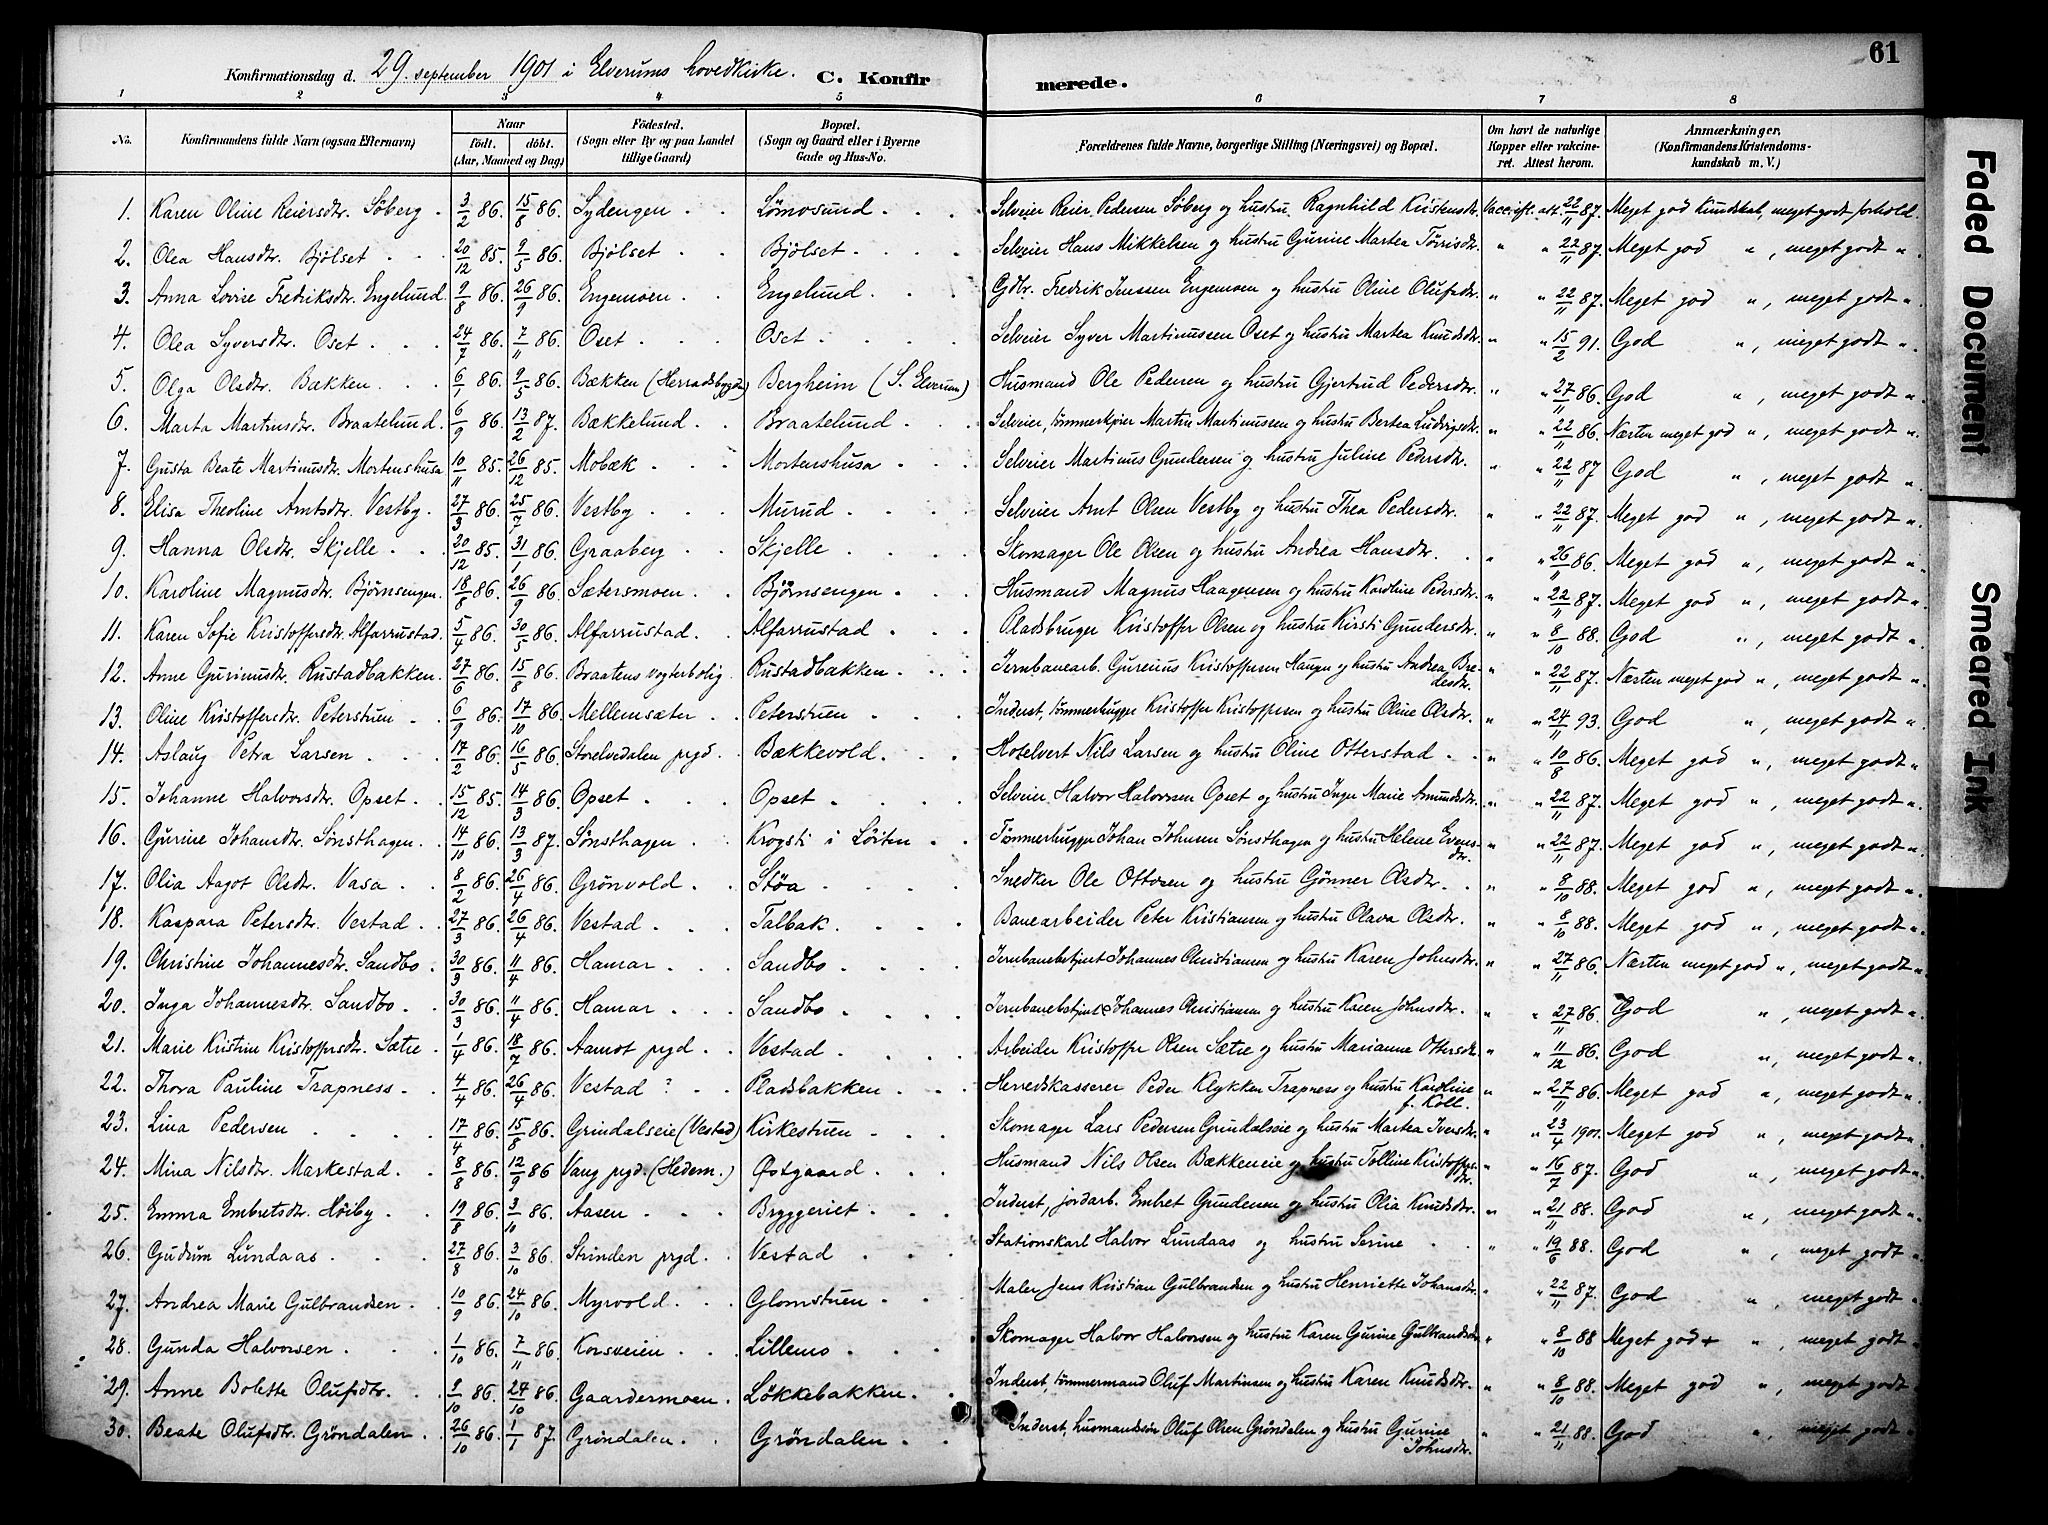 61
Konfirmationsdag d. 29. september 1901 i Elverums hovedkirke. C. Konfir merede.
1 2 3 4 5 6 7 8
No. Konfirmandens fulde Navn (ogsaa Efternavn) Naar født. døbt. (Aar, Maaned og Dag) Fødested. (Sogn eller By og paa Landet tillige Gaard) Bopæl. (Sogn og Gaard eller i Byerne Gade og Hus-No. Forældrenes fulde Navne, borgerlige Stilling (Næringsvei) og Bopæl. Om havt de naturlige Kopper eller vakcineret. Attest herom. Anmærkninger. (Konfirmandens Kristendomskundskab m. V.)
1. Karen Oline Reiersdtr. Söberg 3/2 86. 15/8 86. Sydengen Lömosund Selveier Reier Pedersen Söberg og hustru Ragnhild Kristensdtr. Vacc. ift. att. 22/11 87. Meget god kundskab, meget godt forhold.
2. Olea Hansdtr. Bjölset 20/12 85. 9/5 86. Bjölset Bjölset Selveier Hans Mikkelsen og hustru Gurine Martea Törrisdtr. " " 22/11 87. Meget god ", meget godt "
3. Anna Lovise Fredriksdtr. Engelund 9/8 86. 26/9 86. Engemoen Engelund Gdbr. Fredrik Jenssen Engemoen og hustru Oline Olufsdtr. " " 22/11 87. Meget god ", meget godt "
4. Olea Syversdtr. Oset 24/7 86. 7/11 86. Oset Oset Selveier Syver Martinussen Oset og hustru Martea Knudsdtr. " " 15/2 91. God ", meget godt "
5. Olga Olsdtr. Bækken 6/1 86. 9/5 86. Bækken (Herradsbygda) Bergheim (S. Elverum) Husmand Ole Pedersen og hustru Gjertrud Pedersdtr. " " 27/11 86. God ", meget godt "
6. Marta Martinsdtr. Braatelund. 6/9 86. 13/2 87. Bækkelund Braatelund Selveier, tömmerkjører Martin Martinussen og hustru Bertea Ludvigsdtr. " " 22/11 86. Næsten meget god ", meget godt "
7. Gusta Beate Martinusdtr. Mortenshusa 10/11 85. 26/12 85. Mobæk Mortenshusa Selveier Martinus Gundersen og hustru Juline Pedersdtr. " " 22/11 87 God ", meget godt "
8. Elisa Theoline Arntsdtr. Vestby. 27/3 86. 25/7 86. Vestby Murud Selveier Arnt Olsen Vestby og hustru Thea Pedersdtr. " " 22/11 87. Meget god ", meget godt "
9. Hanna Olsdtr. Skjelle 20/12 85. 31/1 86. Graaberg Skjelle Skomager Ole Olsen og hustru Andrea Hansdtr. " " 26/11 86. Meget god ", meget godt "
10. Karoline Magnusdtr. Bjørnsengen 18/8 86. 26/9 86. Sætersmoen Bjørnsengen Husmand Magnus Haagensen og hustru Karoline Pedersdtr. " " 22/11 87. Meget god ", meget godt "
11. Karen Sofie Kristoffersdtr. Alfarrustad. 5/4 86. 30/5 86. Alfarrustad. Alfarrustad Pladsbruger Kristoffer Olsen og hustru Kirsti Gundersdtr. " " 8/10 88. God ", meget godt "
12. Anne Gurinusdtr. Rustadbakken. 27/6 86. 15/8 86. Braatens vogterbolig Rustadbakken Jernbanearb. Gurinus Kristoffersen Haugen og hustru Andrea Bredesdtr. " " 22/11 87. Næsten meget god ", meget godt "
13. Oline Kristoffersdtr. Peterstuen 6/9 86. 17/10 86. Mellemsæter Peterstuen Inderst, tömmerhugger Kristoffer Kristoffersen og hustru Oline Olsdtr. " " 24/11 93. God ", meget godt "
14. Aslaug Petra Larsen 17/2 86. 16/5 86. Storelvedalen prgd. Bækkevold Hotelvert Nils Larsen og hustru Oline Otterstad " " 10/8 86. Meget god ", meget godt "
15. Johanne Halvorsdtr. Opset 15/12 85. 14/3 86. Opset Opset Selveier Halvor Halvorsen Opset og hustru Inger Marie Amundsdtr. " " 22/11 87. Meget god ", meget godt "
16. Gurine Johansdtr. Sønsthagen 14/10 86. 13/3 87. Sønsthagen Krogsti i Løiten Tømmerhugger Johan Johnsen Sønsthagen og hustru Helene Evensdtr. " " 22/11 87. Meget god ", meget godt "
17. Olia Aagot Olsdtr. Vasa 8/2 86. 26/4 86. Grönvold Støa Snedker Ole Ottosen og hustru Gønner Olsdtr. " " 8/10 88. Meget god ", meget godt "
18. Kaspara Petersdtr. Vestad 27/3 86. 26/4 86. Vestad Talbak Banearbeider Peter Kristiansen og hustru Olava Olsdtr. " " 8/10 88. Meget god ", meget godt "
19. Christine Johannesdtr. Sandbo 30/3 86. 11/4 86. Hamar Sandbo Jernbanebetjent Johannes Christiansen og hustru Karen Johnsdtr. " " 27/11 86. Næsten meget god ", meget godt "
20. Inga Johannesdtr. Sandbo 30/3 86. 11/4 86. Hamar Sandbo Jernbanebetjent Johannes Christiansen og hustru Karen Johnsdtr. " " 27/11 86. God ", meget godt "
21. Marie Kristine Kristoffersdtr. Sætre 1/4 86. 18/7 86. Aamot prgd. Vestad Arbeider Kristoffer Olsen Sætre og hustru Marianne Ottersdtr. " " 11/12 86. God ", meget godt "
22. Thora Pauline Trapness 4/4 86. 26/4 86. Vestad ? Pladsbakken Herredskasserer Peder Klykken Trapness og hustru Karoline f. Koll. " " 27/11 86. Meget god ", meget godt "
23. Lina Pedersen 17/4 86. 15/8 86. Grindalseie (Vestad) Kirkestuen Skomager Lars Pedersen Grindalseie og hustru Martea Iversdtr. " " 23/4 1901. Meget god ", meget godt "
24. Mina Nilsdtr. Markestad. 8/8 86. 12/9 86 Vang prgd. (Hedem.) Østgaard Husmand Nils Olsen Bækkeneie og hustru Tolline Kristoffersdtr. " " 16/7 87. God ", meget godt "
25. Emma Embretsdtr. Høiby. 19/8 86. 3/10 86. Aasen Bryggeriet Inderst, jordarb. Embret Gundersen og hustru Olia Knudsdtr. " " 21/11 88. God ", meget godt "
26. Gudrun Lundaas 27/8 86. 3/10 86. Strinden prgd. Vestad Stationskarl Halvor Lundaas og hustru Serine " " 19/6 88. God ", meget godt "
27. Andrea Marie Gulbrandsen 10/9 86. 24/10 86. Myrvold Glomstuen Maler Jens Kristian Gulbrandsen og hustru Henriette Johansdtr. " " 22/11 87. God ", meget godt "
28. Gunda Halvorsen 1/10 86. 7/11 86. Korsveien Lillemo Skomager Halvor Halvorsen og hustru Karen Gurine Gulbrandsdtr. " " 8/10 88 Meget god + ", meget godt "
29. Anne Bolette Olufsdtr. 9/10 86. 24/10 86. Gaardermoen Løkkebakken Inderst, tømmermand Oluf Martinsen og hustru Karen Knudsdtr. " " 8/10 88. Meget god ", meget godt "
30. Beate Olufsdtr. Gröndalen 26/10 86. 1/1 87. Gröndalen Gröndalen Inderst, husmandssøn Oluf Olsen Gröndalen og hustru Gurine Johnsdtr. " " 21/11 88. God ", meget godt "
Faded Document
Smeared Ink